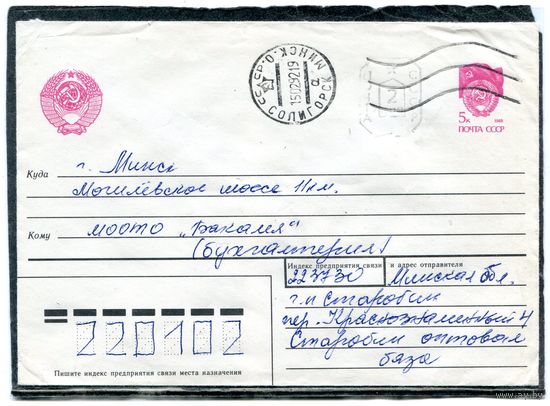 СССР · О. МИНСК
15029219
а
СОЛИГОРСК
СССР
2
5к 1988
ПОЧТА СССР
Куда г. Минск
Могилёвское шоссе 11км.
Кому МООТО „Бакалея“
(бухгалтерия)
Индекс предприятия связи и адрес отправителя
223730 Минская обл.
г.п Старобин
пер. Краснознаменный 4
Старобин оптовая
база
220102
Пишите индекс предприятия связи места назначения
www.ay.by